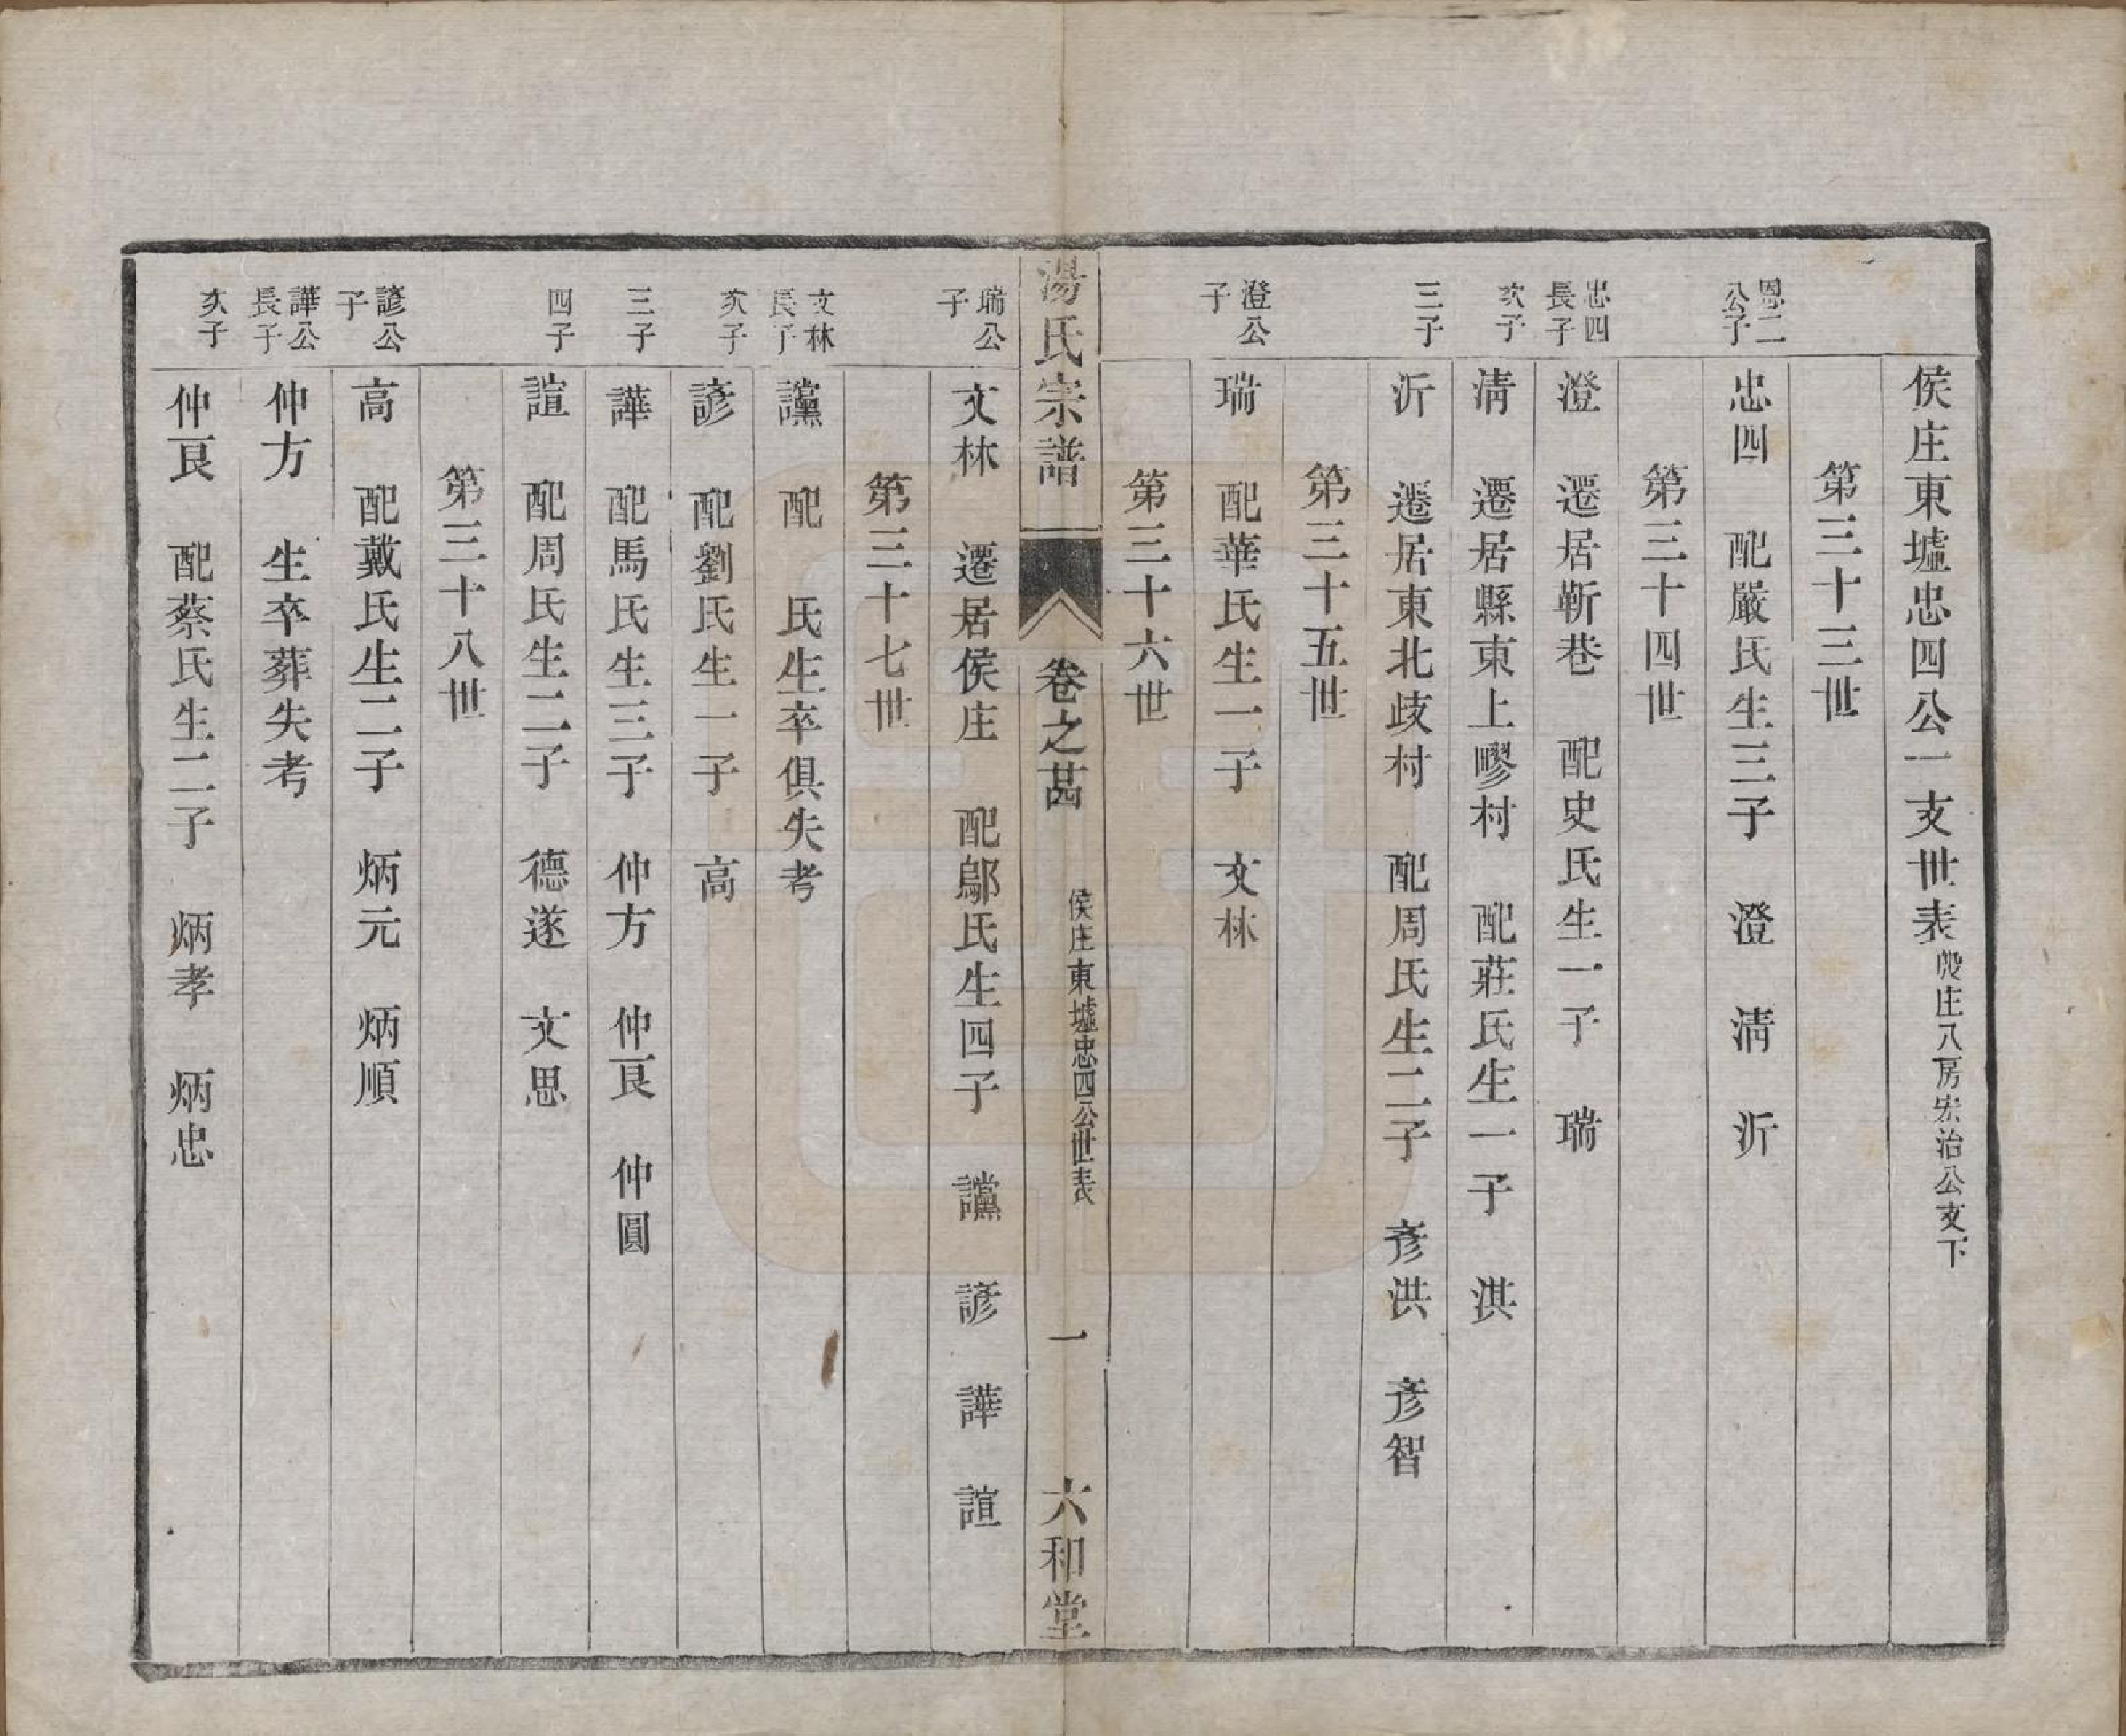 侯庄東墟忠四公一支世表 殷庄八房宏治公支下
第三十三世
恩二公子 忠四 配嚴氏生三子 澄 淸 沂
第三十四世
忠四長子 澄 遷居靳巷 配史氏生一子 瑞
次子 淸 遷居縣東上疁村 配莊氏生一子 淇
三子 沂 遷居東北歧村 配周氏生二子 彥洪 彥智
第三十五世
澄公子 瑞 配華氏生一子 文林
第三十六世
湯氏宗譜 卷之甚 侯庄東墟忠四公世表 一 六和堂
瑞公子 文林 遷居侯庄 配鄔氏生四子 讜 諺 譁 諠
第三十七世
文林長子 讜 配 氏生卒俱失考
次子 諺 配劉氏生一子 高
三子 譁 配馬氏生三子 仲方 仲良 仲圓
四子 諠 配周氏生二子 德遂 文思
第三十八世
諺公子 高 配戴氏生二子 炳元 炳順
譁公長子 仲方 生卒葬失考
次子 仲良 配蔡氏生二子 炳孝 炳忠